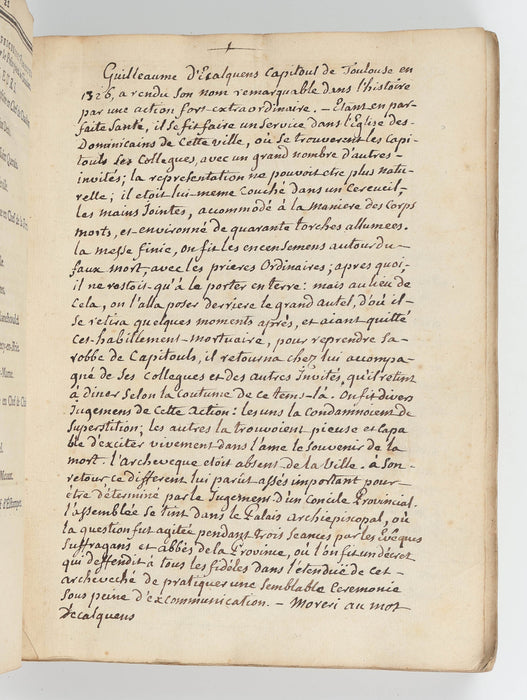 Guilleaume D'Ecalquens Capitoul de Toulouse en
1326, a rendu son nom remarquable dans l'histoire
par une action fors-extraordinaire. – Etans, en par-
faite Santé, il se fit faire un service dans l'Eglise des-
Dominicains de Cette ville, où se trouverent les Capi-
touls Ses Collegues, avec un grand nombre d'autres-
invités; la representation ne pouvoit etre plus natu-
relle; il etoit lui-meme couché dans un Cerceuil,
les mains Jointes, accommodé à la maniere des Corps
morts, et environné de quarante torches allumées.
la messe finie, on fit les encensemens autour du-
faux mort, avec les prieres Ordinaires; apres quoi,
il ne restoit qu'à le porter en terre: mais au lieu de
Cela, on l'alla poser derriere le grand autel, d'où il-
Se retira quelques moments après, et aiant quitté
Ces-habillement-mortuaire, pour reprendre Sa-
robbe de Capitouls, il retourna chez lui accompa-
gné de Ses Collegues et des autres Invités, qu'il retint
à diner Selon la Coutume de ce tems-là. On fit divers
Jugemens de Cette Action: les uns la Condamnoient de
Superstition; les autres la trouvoient pieuse et Capa
ble d'exciter vivement dans l'ame le Souvenir de la
mort. l'Archeveque etoit absent de la Ville. à Son-
retour, ce different lui parut assés important pour-
être déterminé par le Jugement d'un Concile Provincial.
l'assemblée Se tint dans le Palais Archiepiscopal, où
la question fut agitée pendant trois Seances par les Evêques
Suffragans et abbés de la Province, où l'on fit un décret
qui deffendit à tous les fidéles dans l'étenduë de Cet-
archeveché de pratiquer une Semblable Ceremonie
Sous peine d'excommunication. – Moreri au mot
D'ecalquens